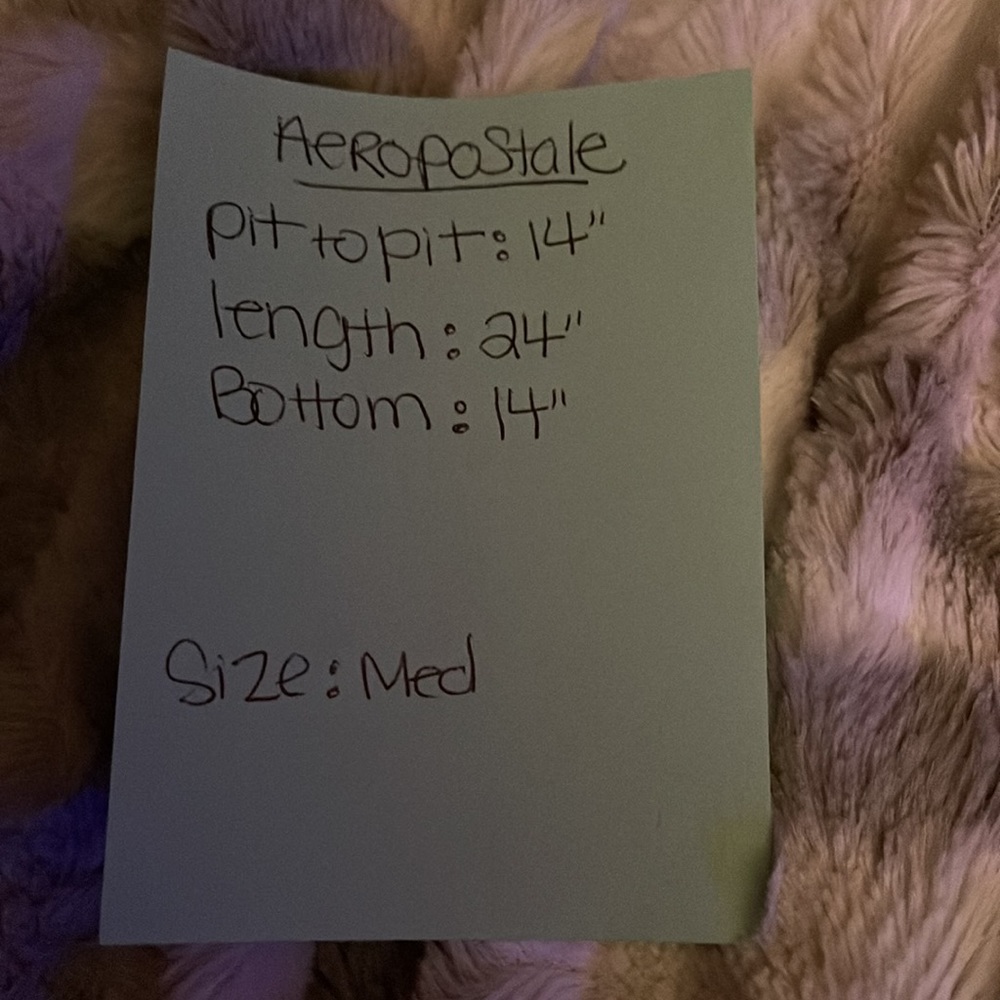 AeRopoStale
Pit to pit: 14"
length: 24"
Bottom: 14"
Size: Med